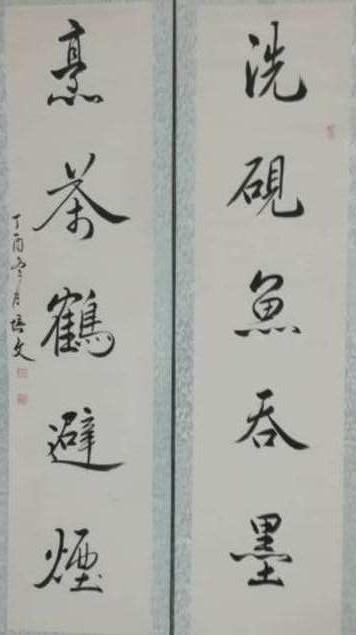 洗硯魚吞墨
烹茶鶴避煙
丁酉冬月培文